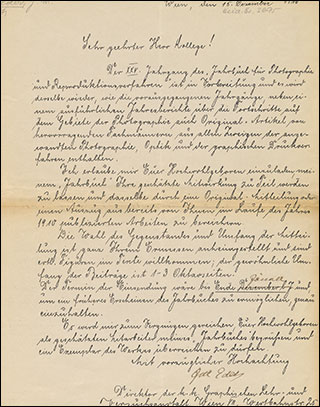 Wien, den 15. Dezember
Sehr geehrter Herr Kollege!
Der XXV. Jahrgang des „Jahrbuch für Photographie
und Reproduktionsverfahren" ist in Vorbereitung und es wird
derselbe wieder, wie die vorausgegangenen Jahrgänge neben ei-
nem ausführlichen Jahresberichte über die Fortschritte auf
dem Gebiete der Photographie auch Original-Artikel von
hervorragenden Fachmännern aus allen Zweigen der ange-
wandten Photographie, Optik und der graphischen Druckver-
fahren enthalten.
Ich erlaube mir Euer Hochwohlgeboren einzuladen mei-
nem „Jahrbuch" Ihre geschätzte Mitwirkung zu Teil werden
zu lassen und dasselbe durch eine Original-Mitteilung oder
einen Auszug aus bereits von Ihnen im Laufe des Jahres
1910 publizierten Arbeiten zu bereichern.
Die Wahl des Gegenstandes und Umfang der Mittei-
lung ist ganz Ihrem Ermessen anheimgestellt und sind
evtl. Figuren im Texte willkommen; der gewöhnliche Um-
fang der Beiträge ist 1-3 Oktavseiten.
Der Termin der Einsendung wäre bis Ende Dezember
um ein früheres Erscheinen des Jahrbuches zu ermöglichen, genau
einzuhalten.
Es wird mir zum Vergnügen gereichen, Euer Hochwohlgeboren
als geschätzten Mitarbeiter meines „Jahrbuches" begrüßen und
ein Exemplar des Werkes überreichen zu dürfen.
Mit vorzüglicher Hochachtung
Eder
Direktor der k. k. Graphischen Lehr- und
Versuchsanstalt, Wien VII. Westbahnstr. 25